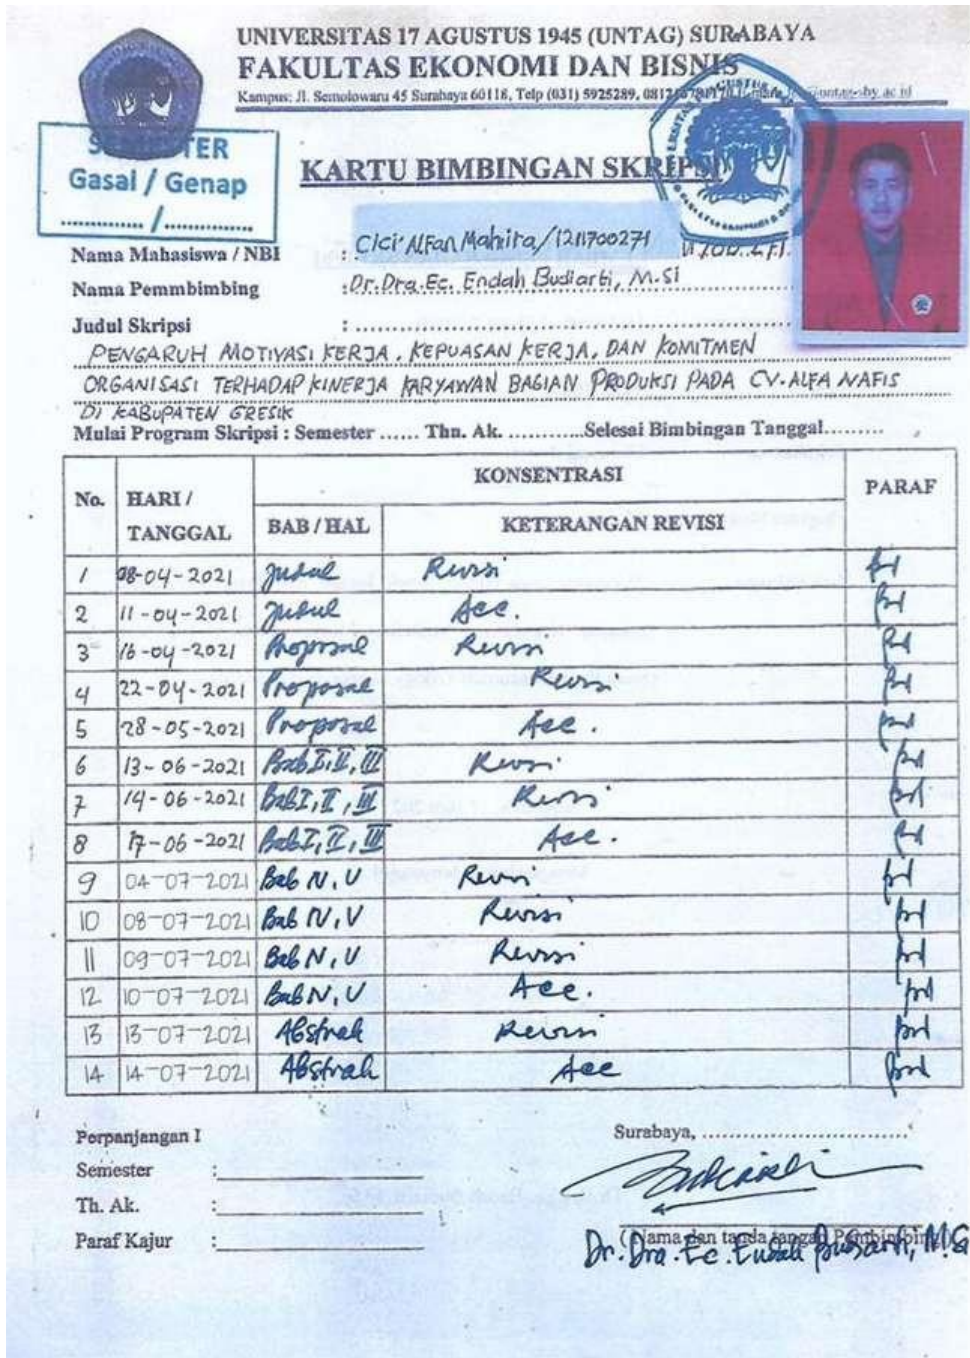 UNIVERSITAS 17 AGUSTUS 1945 (UNTAG) SURABAYA
FAKULTAS EKONOMI DAN BISNIS
Kampus: Jl. Semolowaru 45 Surabaya 60118, Telp (031) 5925289,
SEMESTER
Gasal / Genap
............ / ..............
KARTU BIMBINGAN SKRIPSI
Nama Mahasiswa / NBI : Cici Alfan Mahita/1211700271
Nama Pemmbimbing : Dr. Dra. Ec. Endah Budiarti, M.Si
Judul Skripsi :
PENGARUH MOTIVASI KERJA, KEPUASAN KERJA, DAN KOMITMEN
ORGANISASI TERHADAP KINERJA KARYAWAN BAGIAN PRODUKSI PADA CV. ALFA NAFIS
DI KABUPATEN GRESIK
Mulai Program Skripsi : Semester ...... Thn. Ak. ............Selesai Bimbingan Tanggal.........
No. HARI / TANGGAL KONSENTRASI PARAF
BAB / HAL KETERANGAN REVISI
1 08-04-2021 Judul Revisi
2 11-04-2021 Judul Acc.
3 16-04-2021 Proposal Revisi
4 22-04-2021 Proposal Revisi
5 28-05-2021 Proposal Acc.
6 13-06-2021 Bab I, II, III Revisi
7 14-06-2021 Bab I, II, III Revisi
8 17-06-2021 Bab I, II, III Acc.
9 04-07-2021 Bab IV, V Revisi
10 08-07-2021 Bab IV, V Revisi
11 09-07-2021 Bab IV, V Revisi
12 10-07-2021 Bab IV, V Acc.
13 13-07-2021 Abstrak Revisi
14 14-07-2021 Abstrak Acc
Perpanjangan I
Semester :
Th. Ak. :
Paraf Kajur :
Surabaya, ..............................
(Nama dan tanda tangan Pembimbing)
Dr. Dra. Ec. Endah Budiarti, M.Si